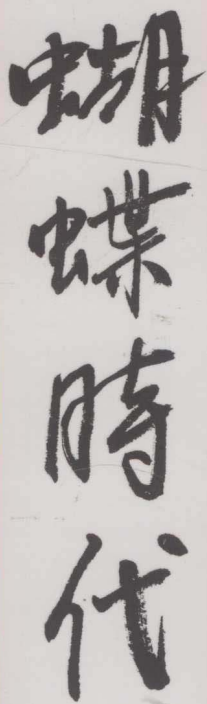 蝴蝶時代